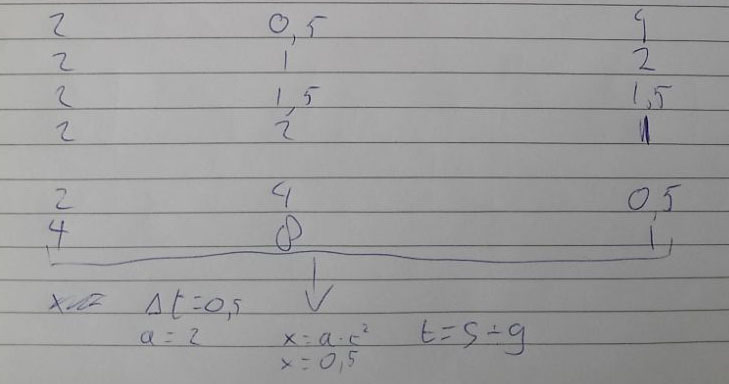 2 0,5 4
2 1 2
2 1,5 1,5
2 2 1
2 4 0,5
4 8 1
Δt=0,5
a=2 x=a·t² t=s÷g
x=0,5